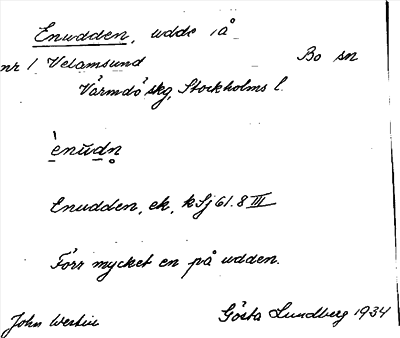 Enudden, udde i å
nr 1 Velamsund Bo sn
Värmdö skg, Stockholms l.
ènŭdn̥
Enudden, ek, k Sj 61.8 III
Förr mycket en på udden.
John Gösta Lundberg 1934